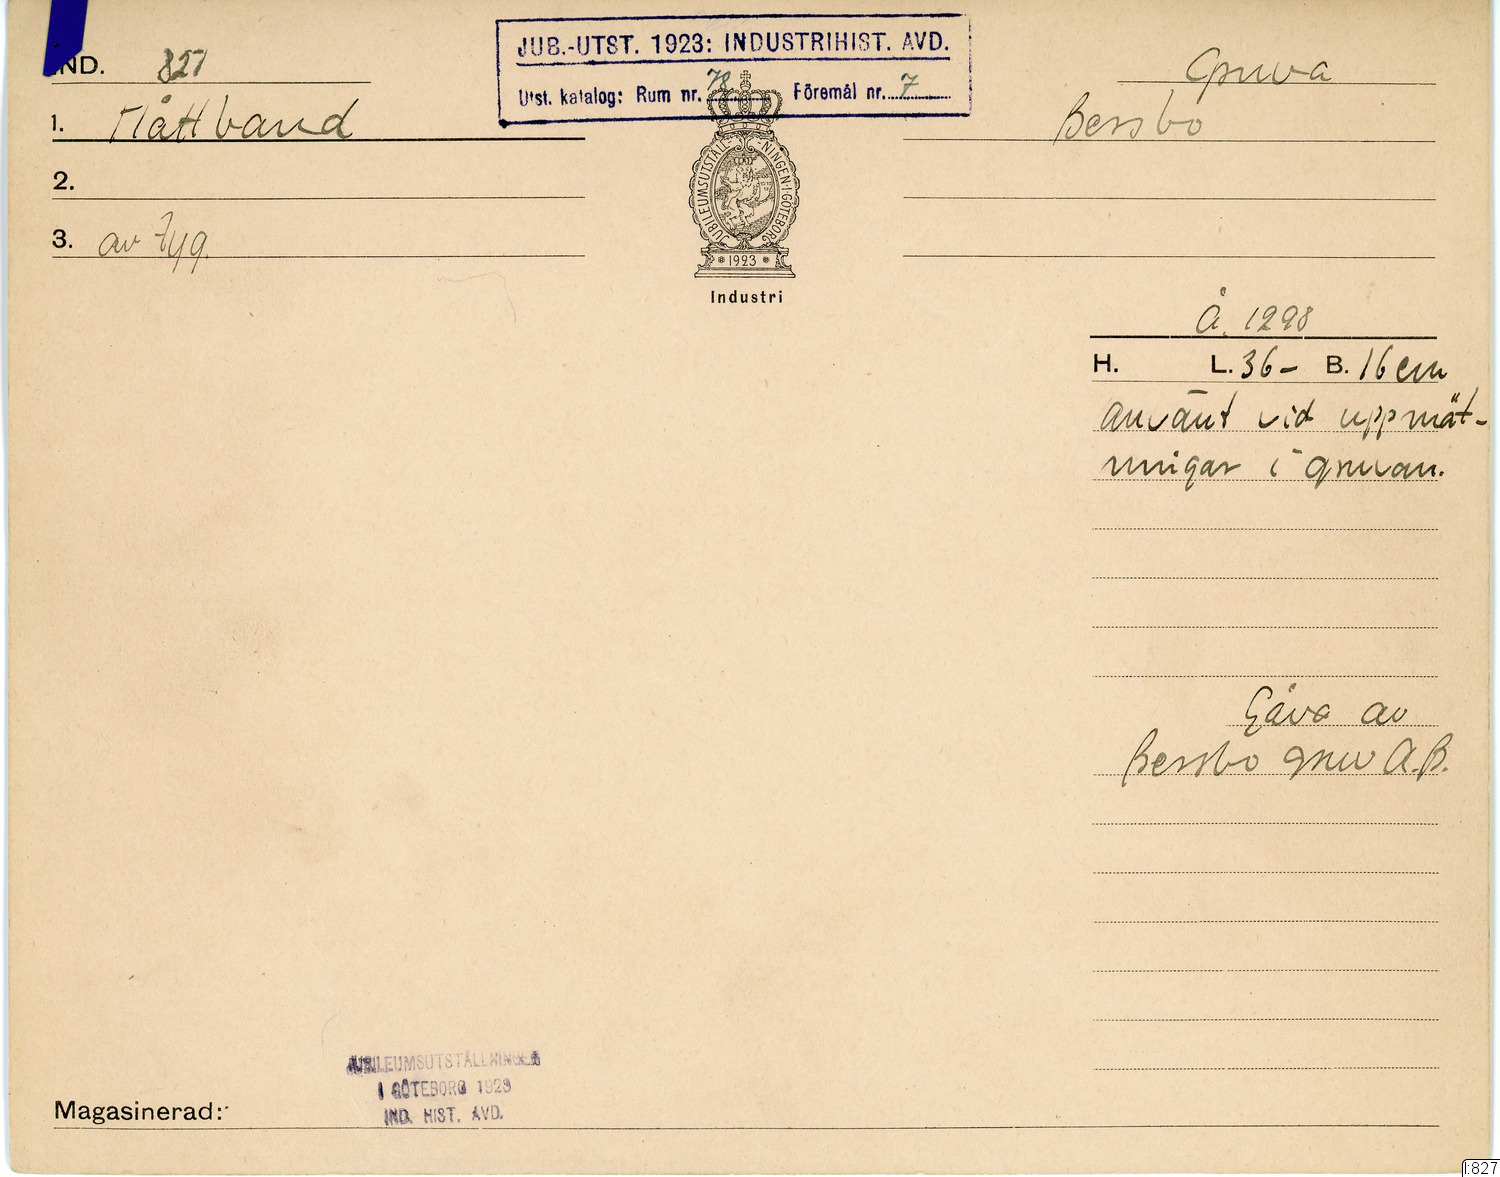 JUB.-UTST. 1923: INDUSTRIHIST. AVD.
Utst. katalog: Rum nr. 78 Föremål nr. 7
IND. 827
1. Måttband
2.
3. av tyg.
Gruva
Bersbo
JUBILEUMSUTSTÄLL-NINGEN·I·GÖTEBORG
* 1923 *
Industri
Å. 1298
H. L. 36- B. 16 cm
använt vid uppmät-
ningar i gruvan.
Gåva av
Bersbo gruv A.B.
JUBILEUMSUTSTÄLLNINGEN
I GÖTEBORG 1923
IND. HIST. AVD.
Magasinerad:
I:827